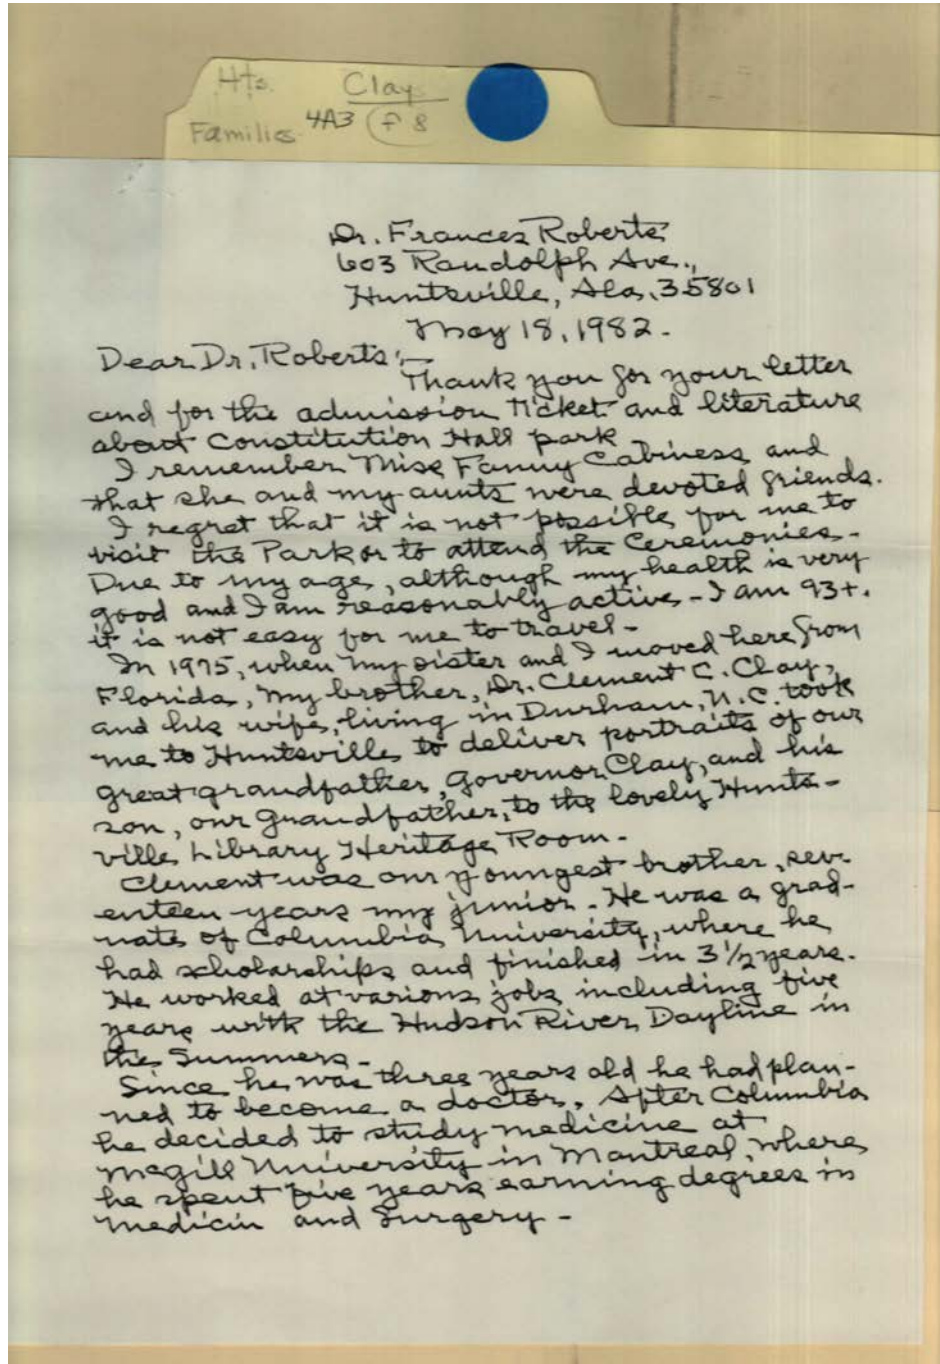 Hts. Clay
Families 4A3 f 8
Dr. Frances Roberts
603 Randolph Ave.,
Huntsville, Ala, 35801
May 18, 1982.
Dear Dr. Roberts:—
Thank you for your letter
and for the admission ticket and literature
about Constitution Hall park
I remember Miss Fanny Cabiness and
that she and my aunts were devoted friends.
I regret that it is not possible for me to
visit the Park or to attend the Ceremonies-
Due to my age, although my health is very
good and I am reasonably active - I am 93+.
it is not easy for me to travel-
In 1975, when my sister and I moved here from
Florida, my brother, Dr. Clement C. Clay,
and his wife, living in Durham, N.C. took
me to Huntsville to deliver portraits of our
great grandfather, Governor Clay, and his
son, our grandfather, to the lovely Hunts-
ville Library Heritage Room-
Clement was our youngest brother, sev-
enteen years my junior- He was a grad-
uate of Columbia University, where he
had scholarships and finished in 3 1/2 years.
He worked at various jobs including five
years with the Hudson River Dayline in
the Summers-
Since he was three years old he had plan-
ned to become a doctor. After Columbia
he decided to study medicine at
McGill University in Montreal, where
he spent five years earning degrees in
Medicin and Surgery-